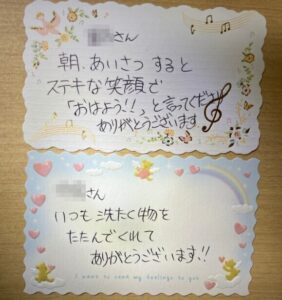 さん
朝、あいさつすると
ステキな笑顔で
「おはよう!!」と言ってくださり
ありがとうございます
さん
いつも洗たく物を
たたんでくれて
ありがとうございます!!
I want to send my feelings to you